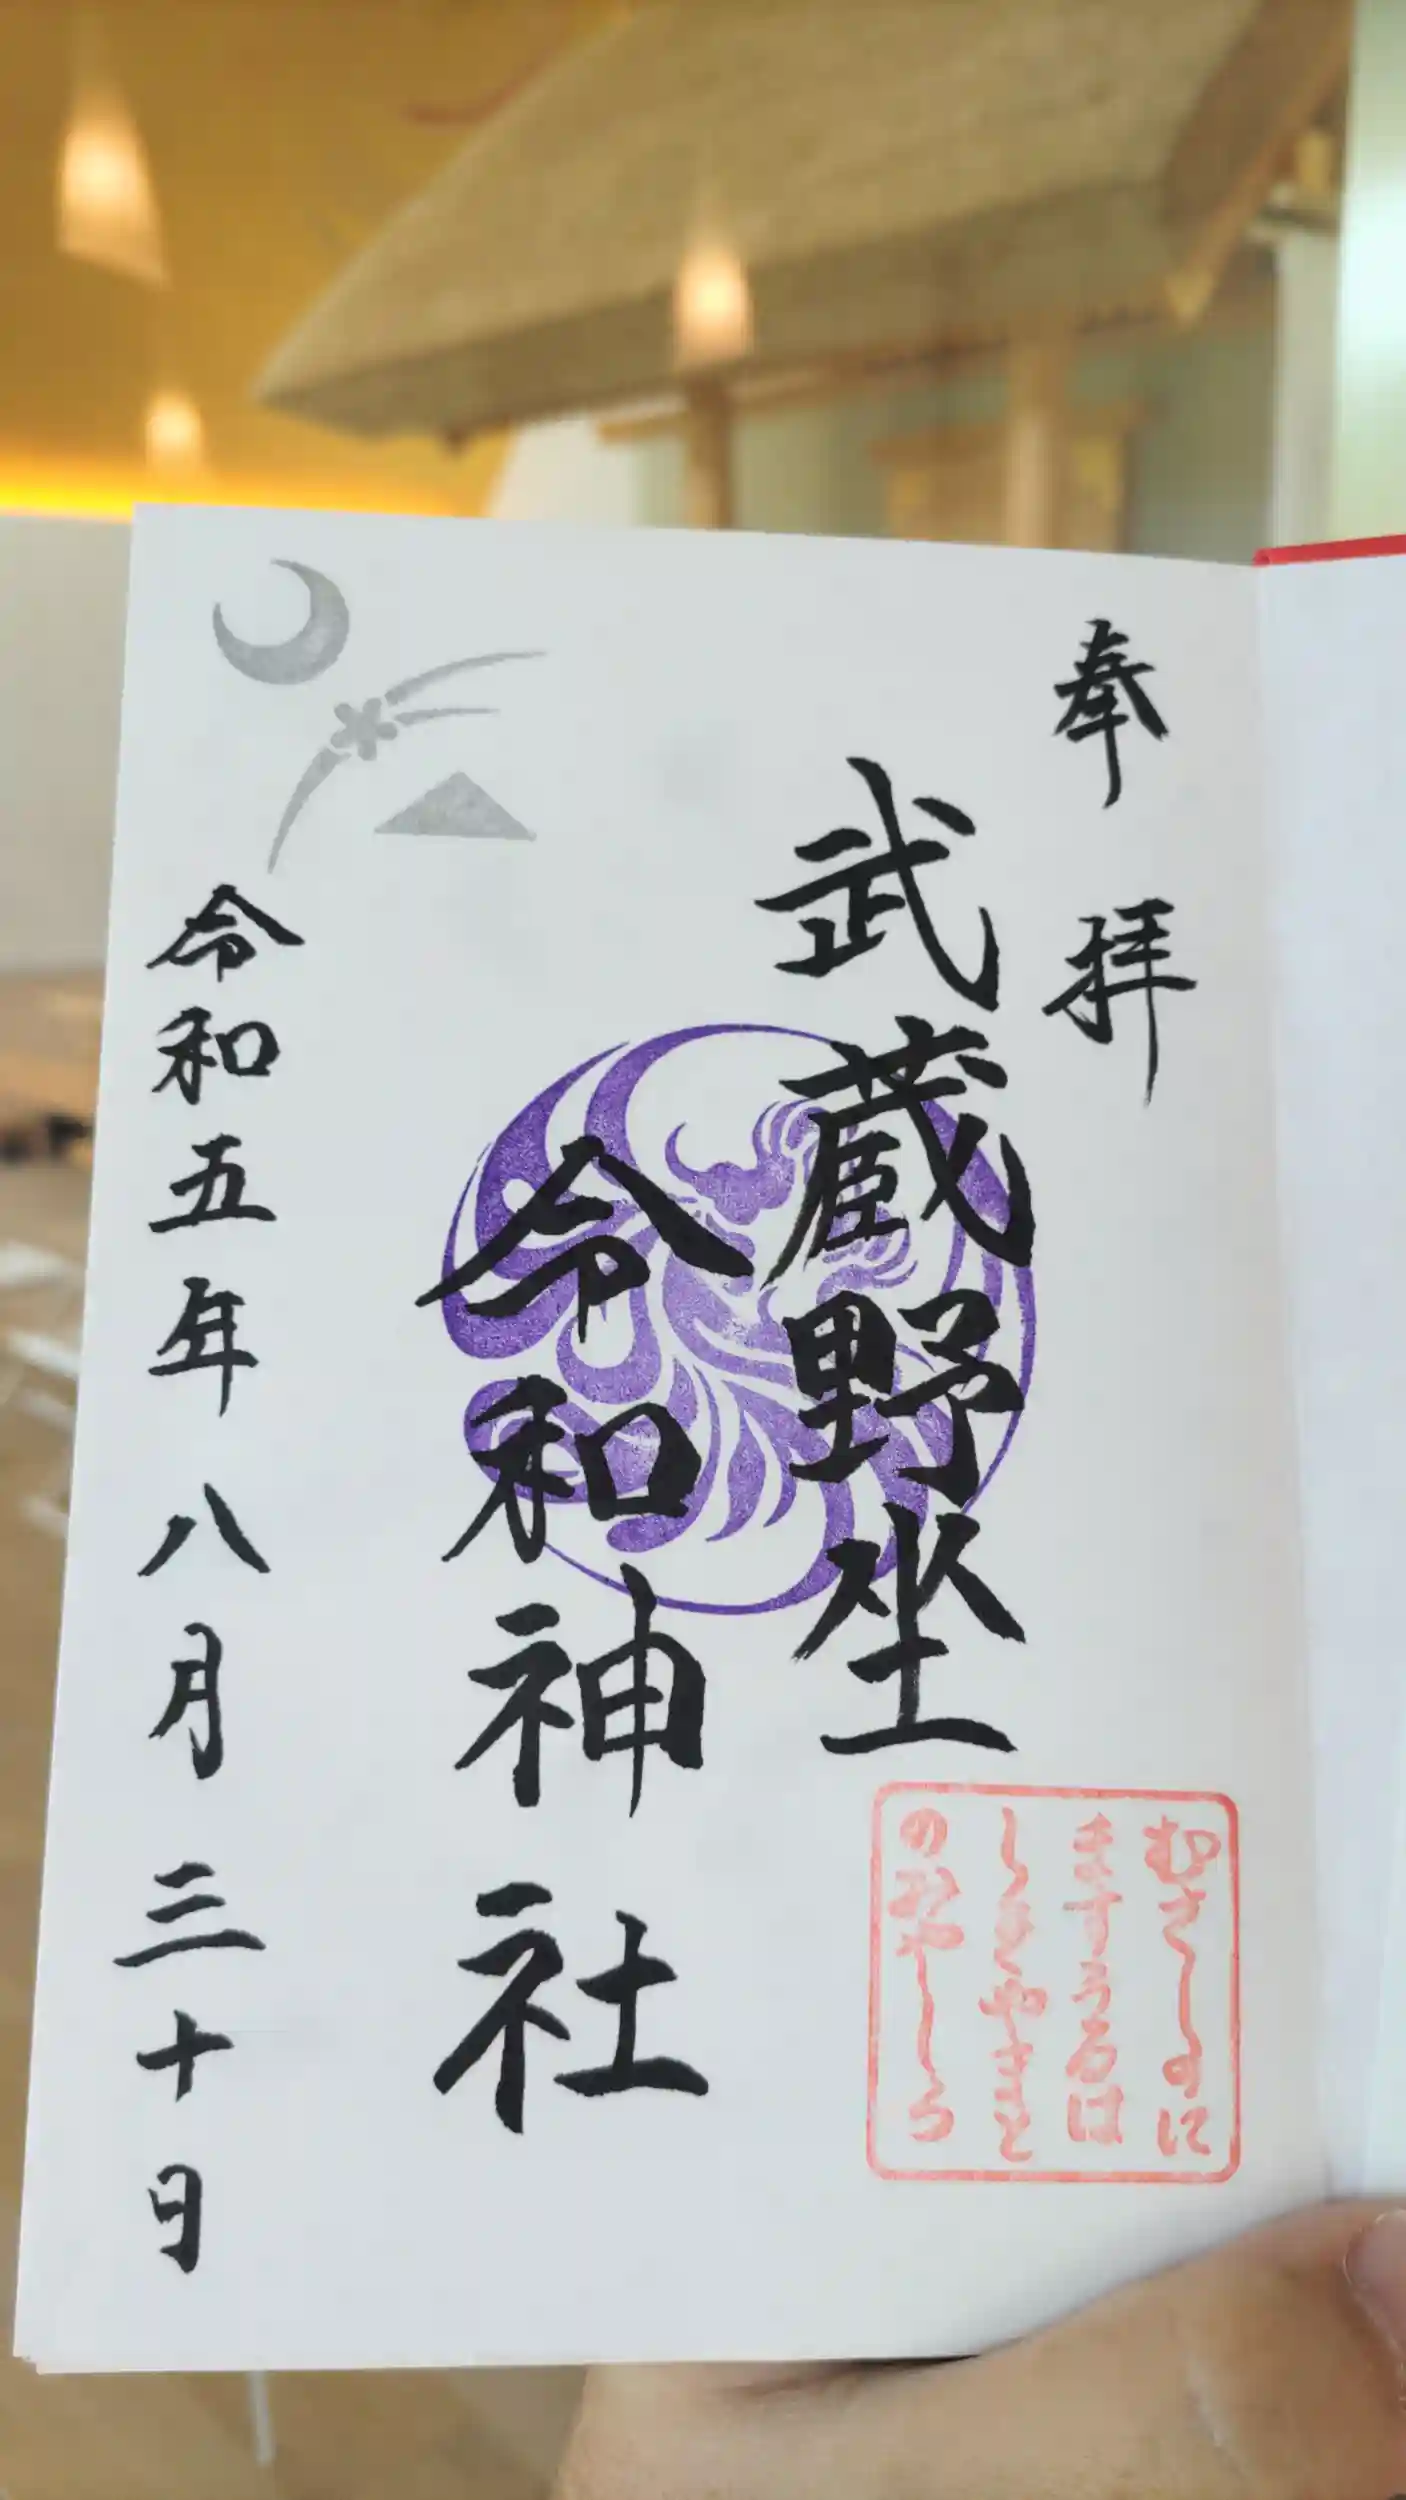 奉拝
武蔵野坐
令和神社
令和五年八月三十日
むさしのに
ますうるは
しきやまと
のみやしろ